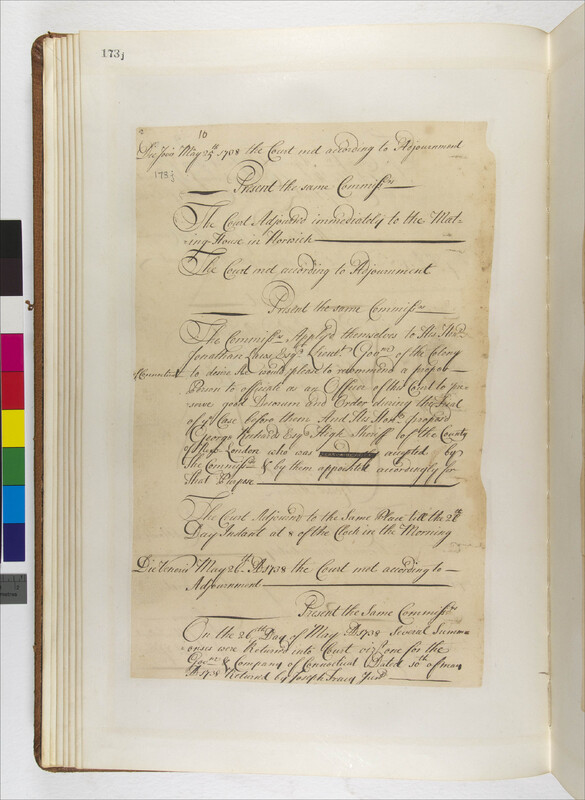 173j
10
Die Jovis May 25th 1738 the Court met according to Adjournment
173j
Present the same Commissrs
The Court Adjourn'd immediately to the Meet-
-ing House in Norwich
The Court met according to Adjournment
Present the same Commissrs
The Commissrs Apply'd themselves to His Honr
Jonathan Law Esqr Lieutt Govr of the Colony
of Connecticut
to desire He would please to recommend a proper
Person to officiate as an Officer of this Court to pre-
serve good Decorum and Order during the Trial
of ye Case before them And His Honr propos'd
George Richards Esqr High Sheriff of the County
of New London who was accepted by
the Commissrs & by them appointed accordingly for
that Purpose
The Court Adjourn'd to the Same Place till the 26th
Day Instant at 8 of the Clock in the Morning
Die Veneris May 26th AD 1738 the Court met according to
Adjournment
Present the Same Commissrs
On the 26th Day of May AD 1738 Several Summ-
-onses were Return'd into Court vizt one for the
Govr & Company of Connecticut Dated 10th of May
AD 1738 Return'd by Joseph Tracy Junr